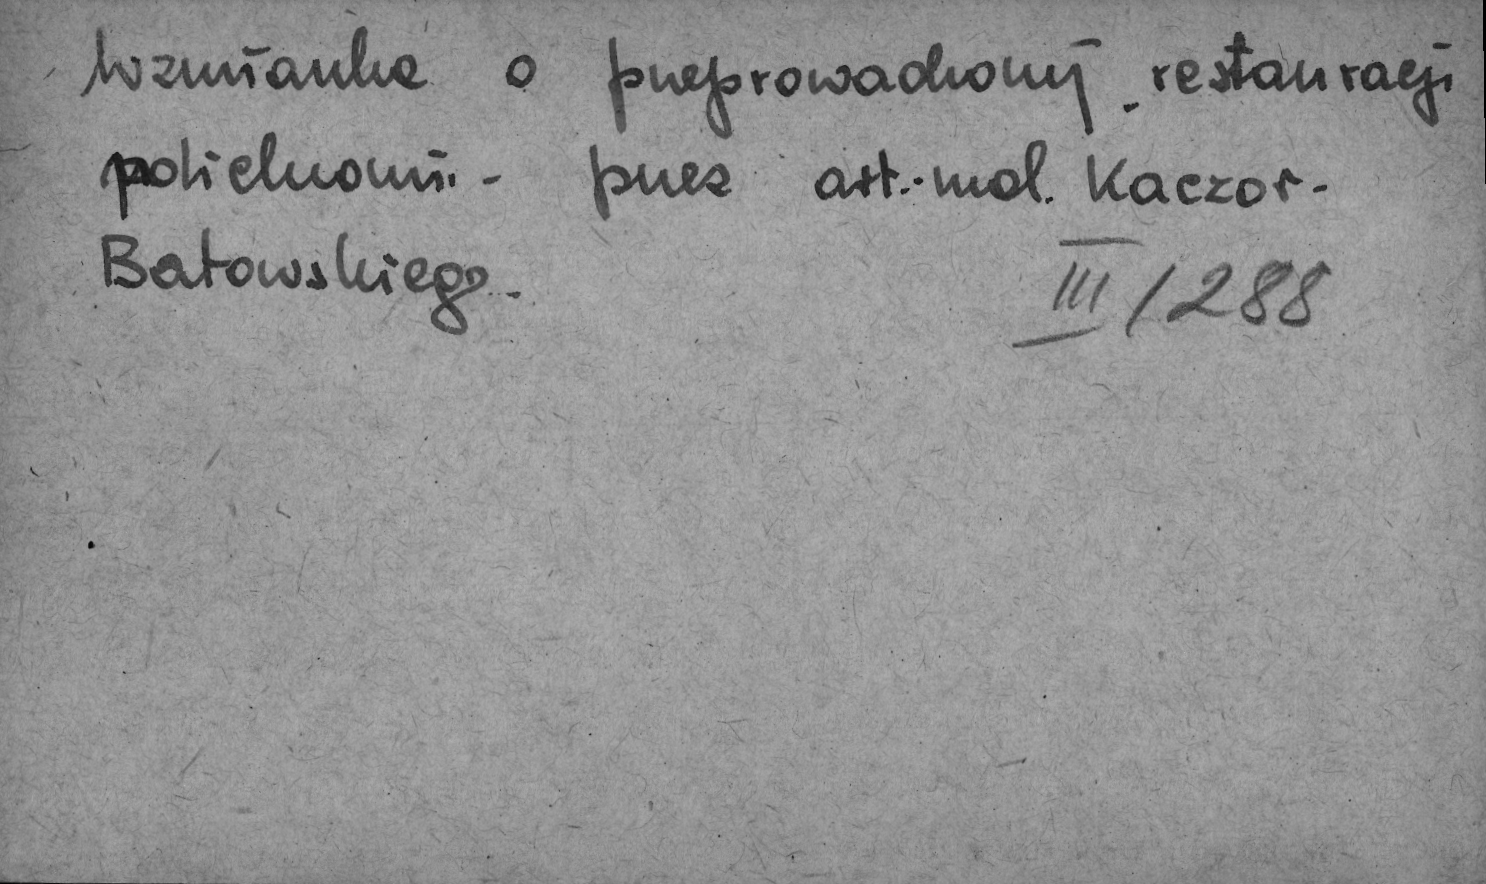 Wzmianka o przeprowadzonej restauracji
polichromii - przez art.-mal. Kaczor-
Batowskiego.
III/288